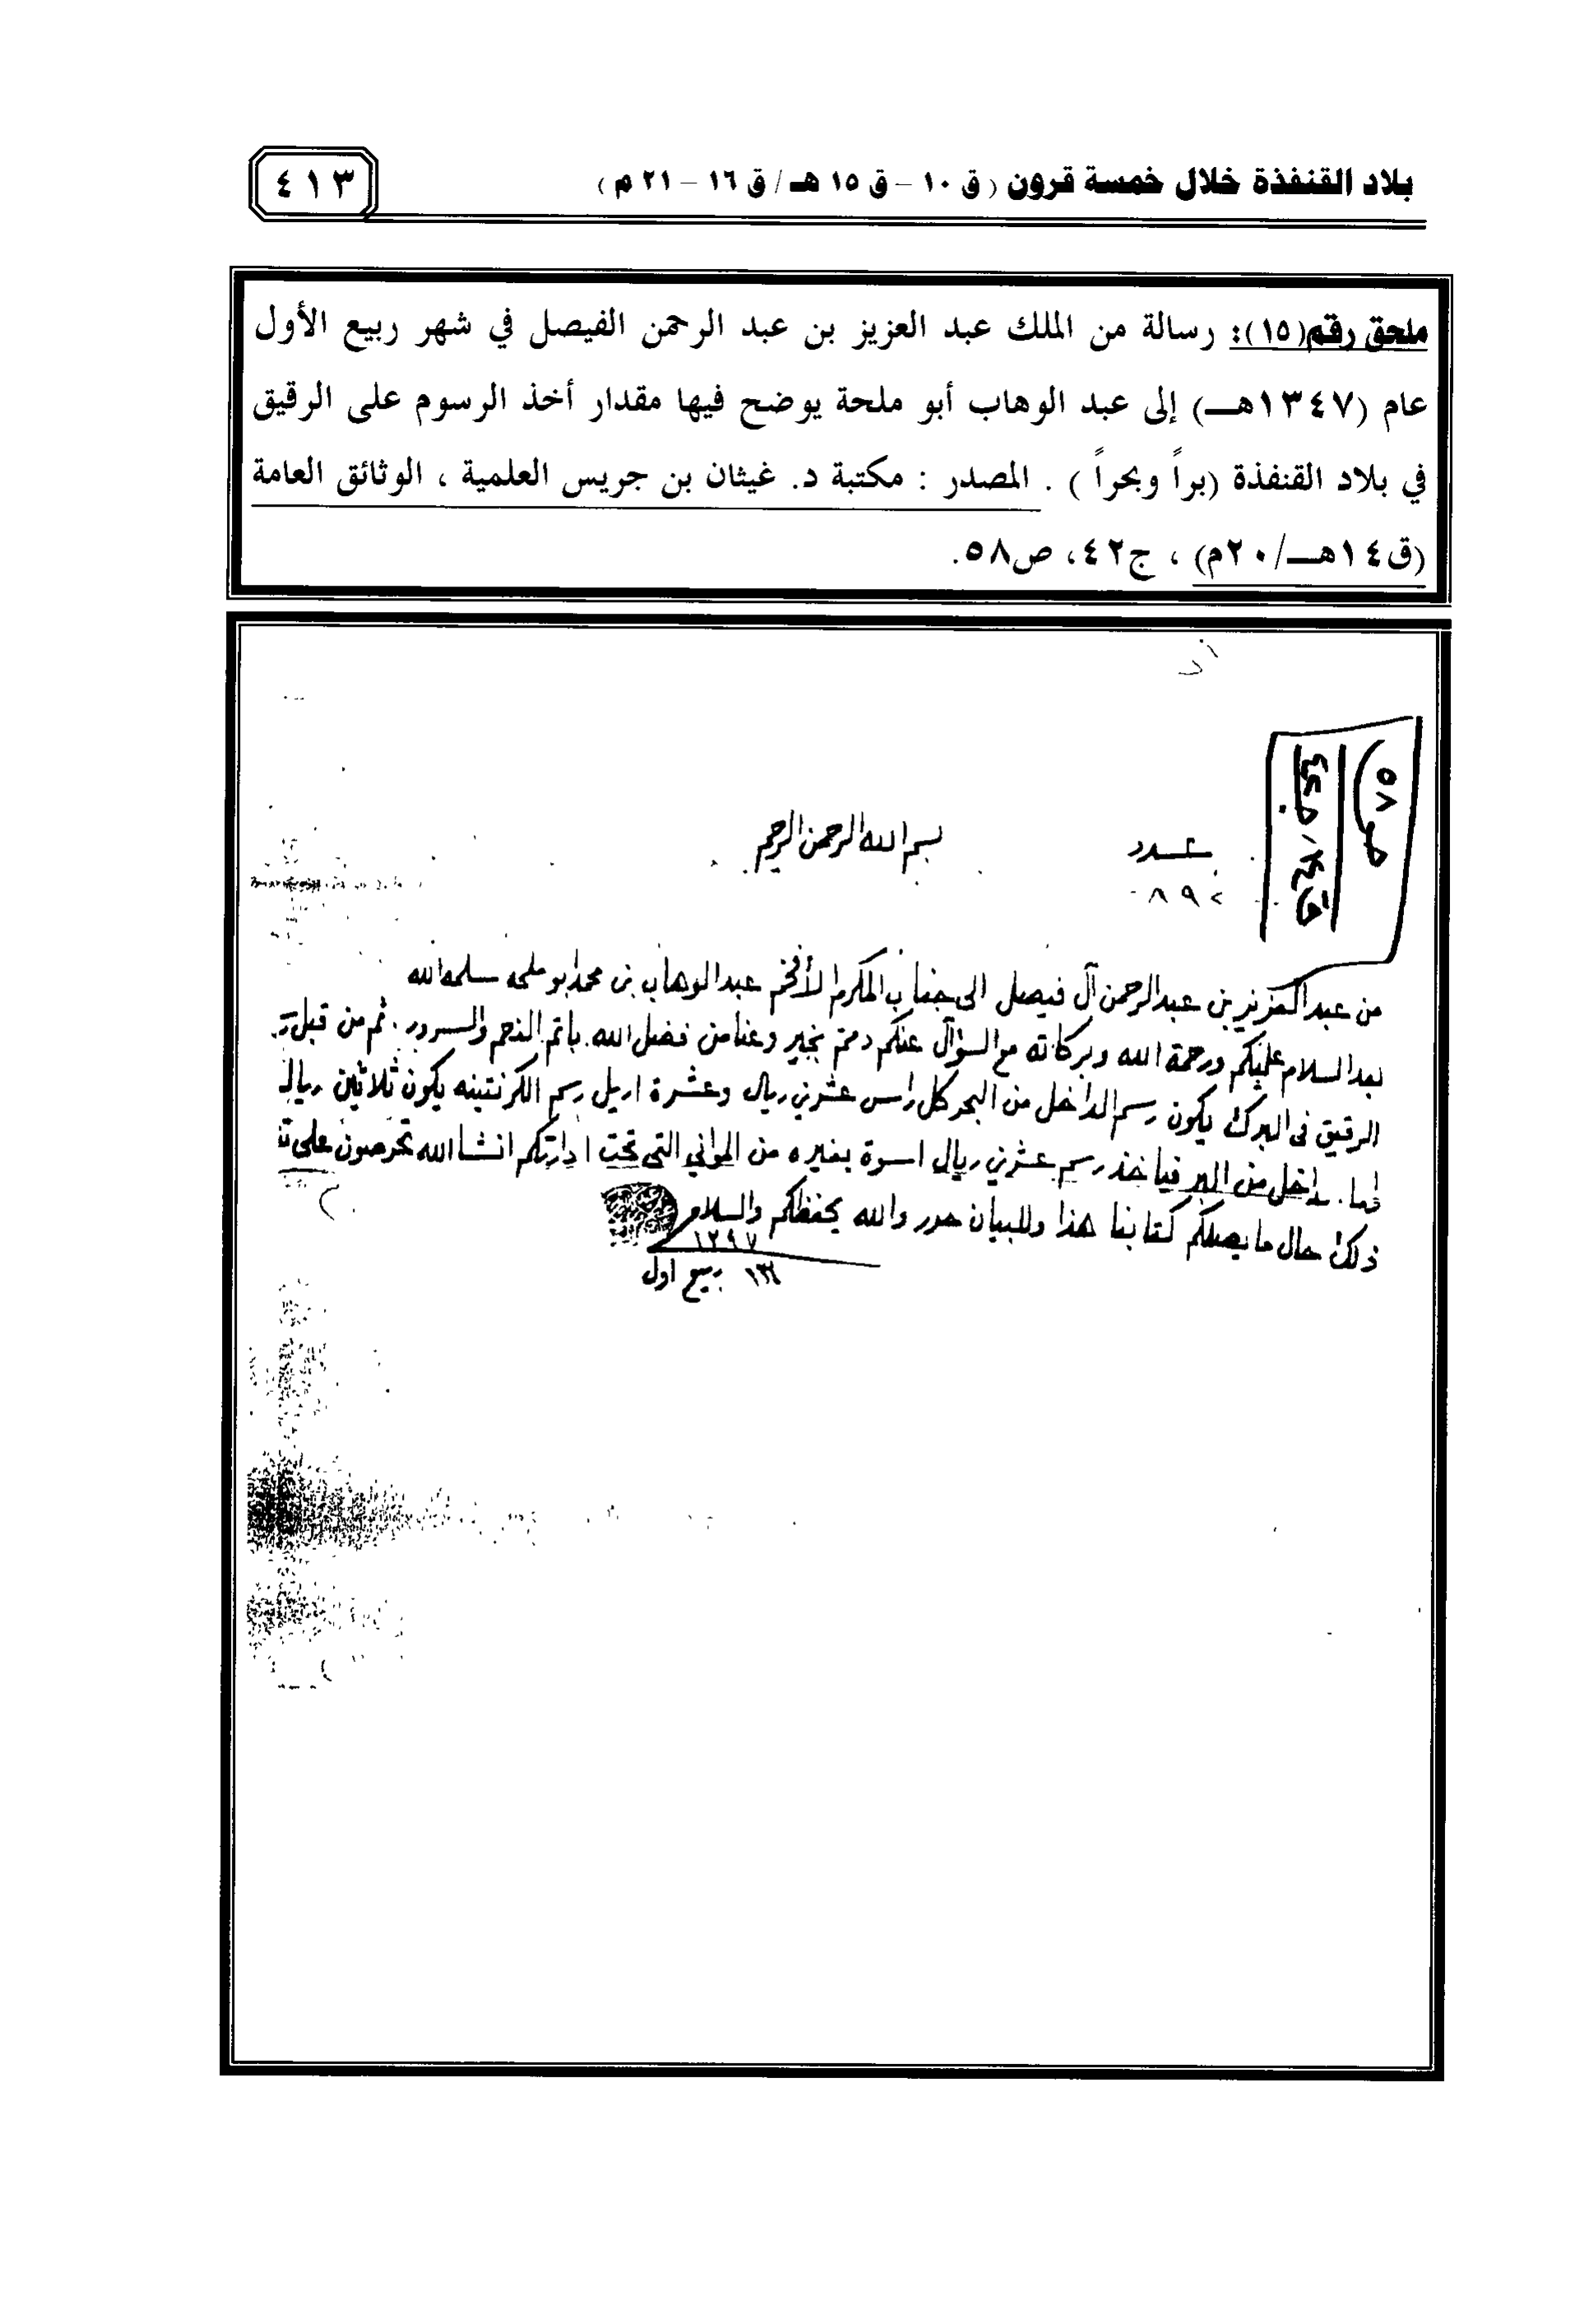 بلاد القنفذة خلال خمسة قرون ( ق ١٠ – ق ١٥ هـ / ق ١٦ – ٢١ م )
٤١٣
ملحق رقم(١٥): رسالة من الملك عبد العزيز بن عبد الرحمن الفيصل في شهر ربيع الأول
عام (١٣٤٧هـ) إلى عبد الوهاب أبو ملحة يوضح فيها مقدار أخذ الرسوم على الرقيق
في بلاد القنفذة (براً وبحراً ) . المصدر : مكتبة د. غيثان بن جريس العلمية ، الوثائق العامة
(ق١٤هـ/٢٠م) ، ج٤٢، ص٥٨.
ص٥٨
بسم الله الرحمن الرحيم
عدد
من عبد العزيز بن عبد الرحمن آل فيصل الى جناب المكرم الأفخم عبد الوهاب بن محمد ابو ملحه سلمه الله
بعد السلام عليكم ورحمة الله وبركاته مع السؤال عنكم دمتم بخير وعنا من فضل الله باتم النعم والسرور. ثم من قبل
الرقيق فى البرك يكون رسم الداخل من البحر كل راس عشرين ريال وعشرة اريل رسم الكرنتينه يكون ثلاثين ريال
داخل من البر فياخذ رسم عشرين ريال اسوة بغيره من الموانى التى تحت ادارتكم انشاالله تحرصون على
ذلك حال ما يصلكم كتابنا هذا وللبيان حرر والله يحفظكم والسلام
١٢٩٧
ربيع اول